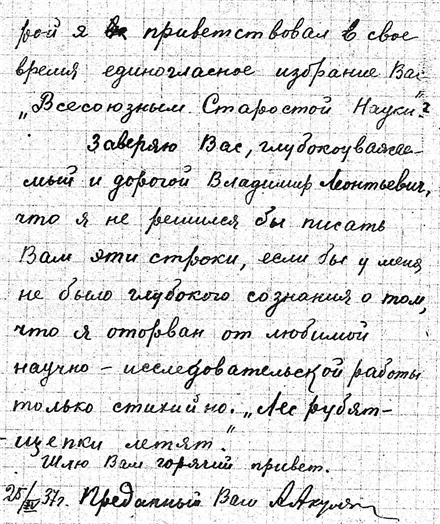 рой я приветствовал в свое
время единогласное избрание Вас
„Всесоюзным Старостой Науки".
Заверяю Вас, глубокоуважае-
мый и дорогой Владимир Леонтьевич,
что я не решился бы писать
Вам эти строки, если бы у меня
не было глубокого сознания о том,
что я оторван от любимой
научно – исследовательской работы
только стихийно. „Лес рубят –
щепки летят."
Шлю Вам горячий привет.
25/IV 37г. Преданный Вам